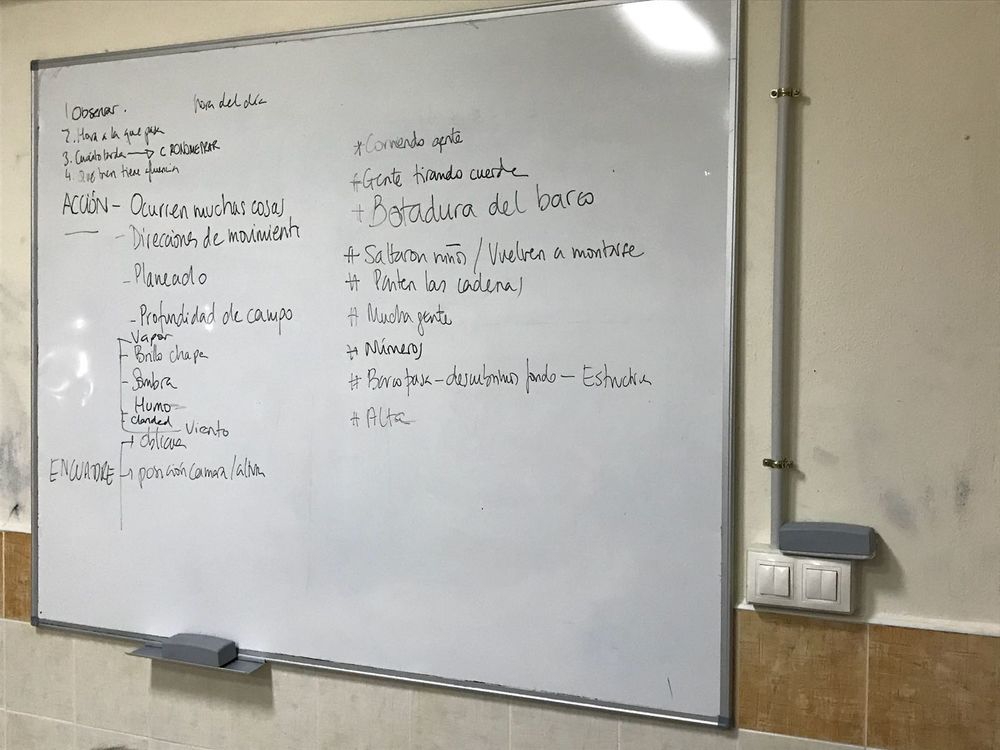 1 Observar.
hora del día
2. Hora a la que pasa
3. Cuánto tarda → CRONOMETRAR
4. Que tren tiene afluencia
ACCIÓN - Ocurren muchas cosas
- Direcciones de movimiento
- Planeado
- Profundidad de campo
- Vapor
- Brillo chapa
- Sombra
- Humo
- claridad
Viento
→ Oblicua
ENCUADRE → posición camara/altura
* Corriendo gente
# Gente tirando cuerda
+ Botadura del barco
# Saltaron niños / Vuelven a montarse
# Parten las cadenas
# Mucha gente
# Números
# Barco pasa - descubrimos fondo - Estructura
# Alta